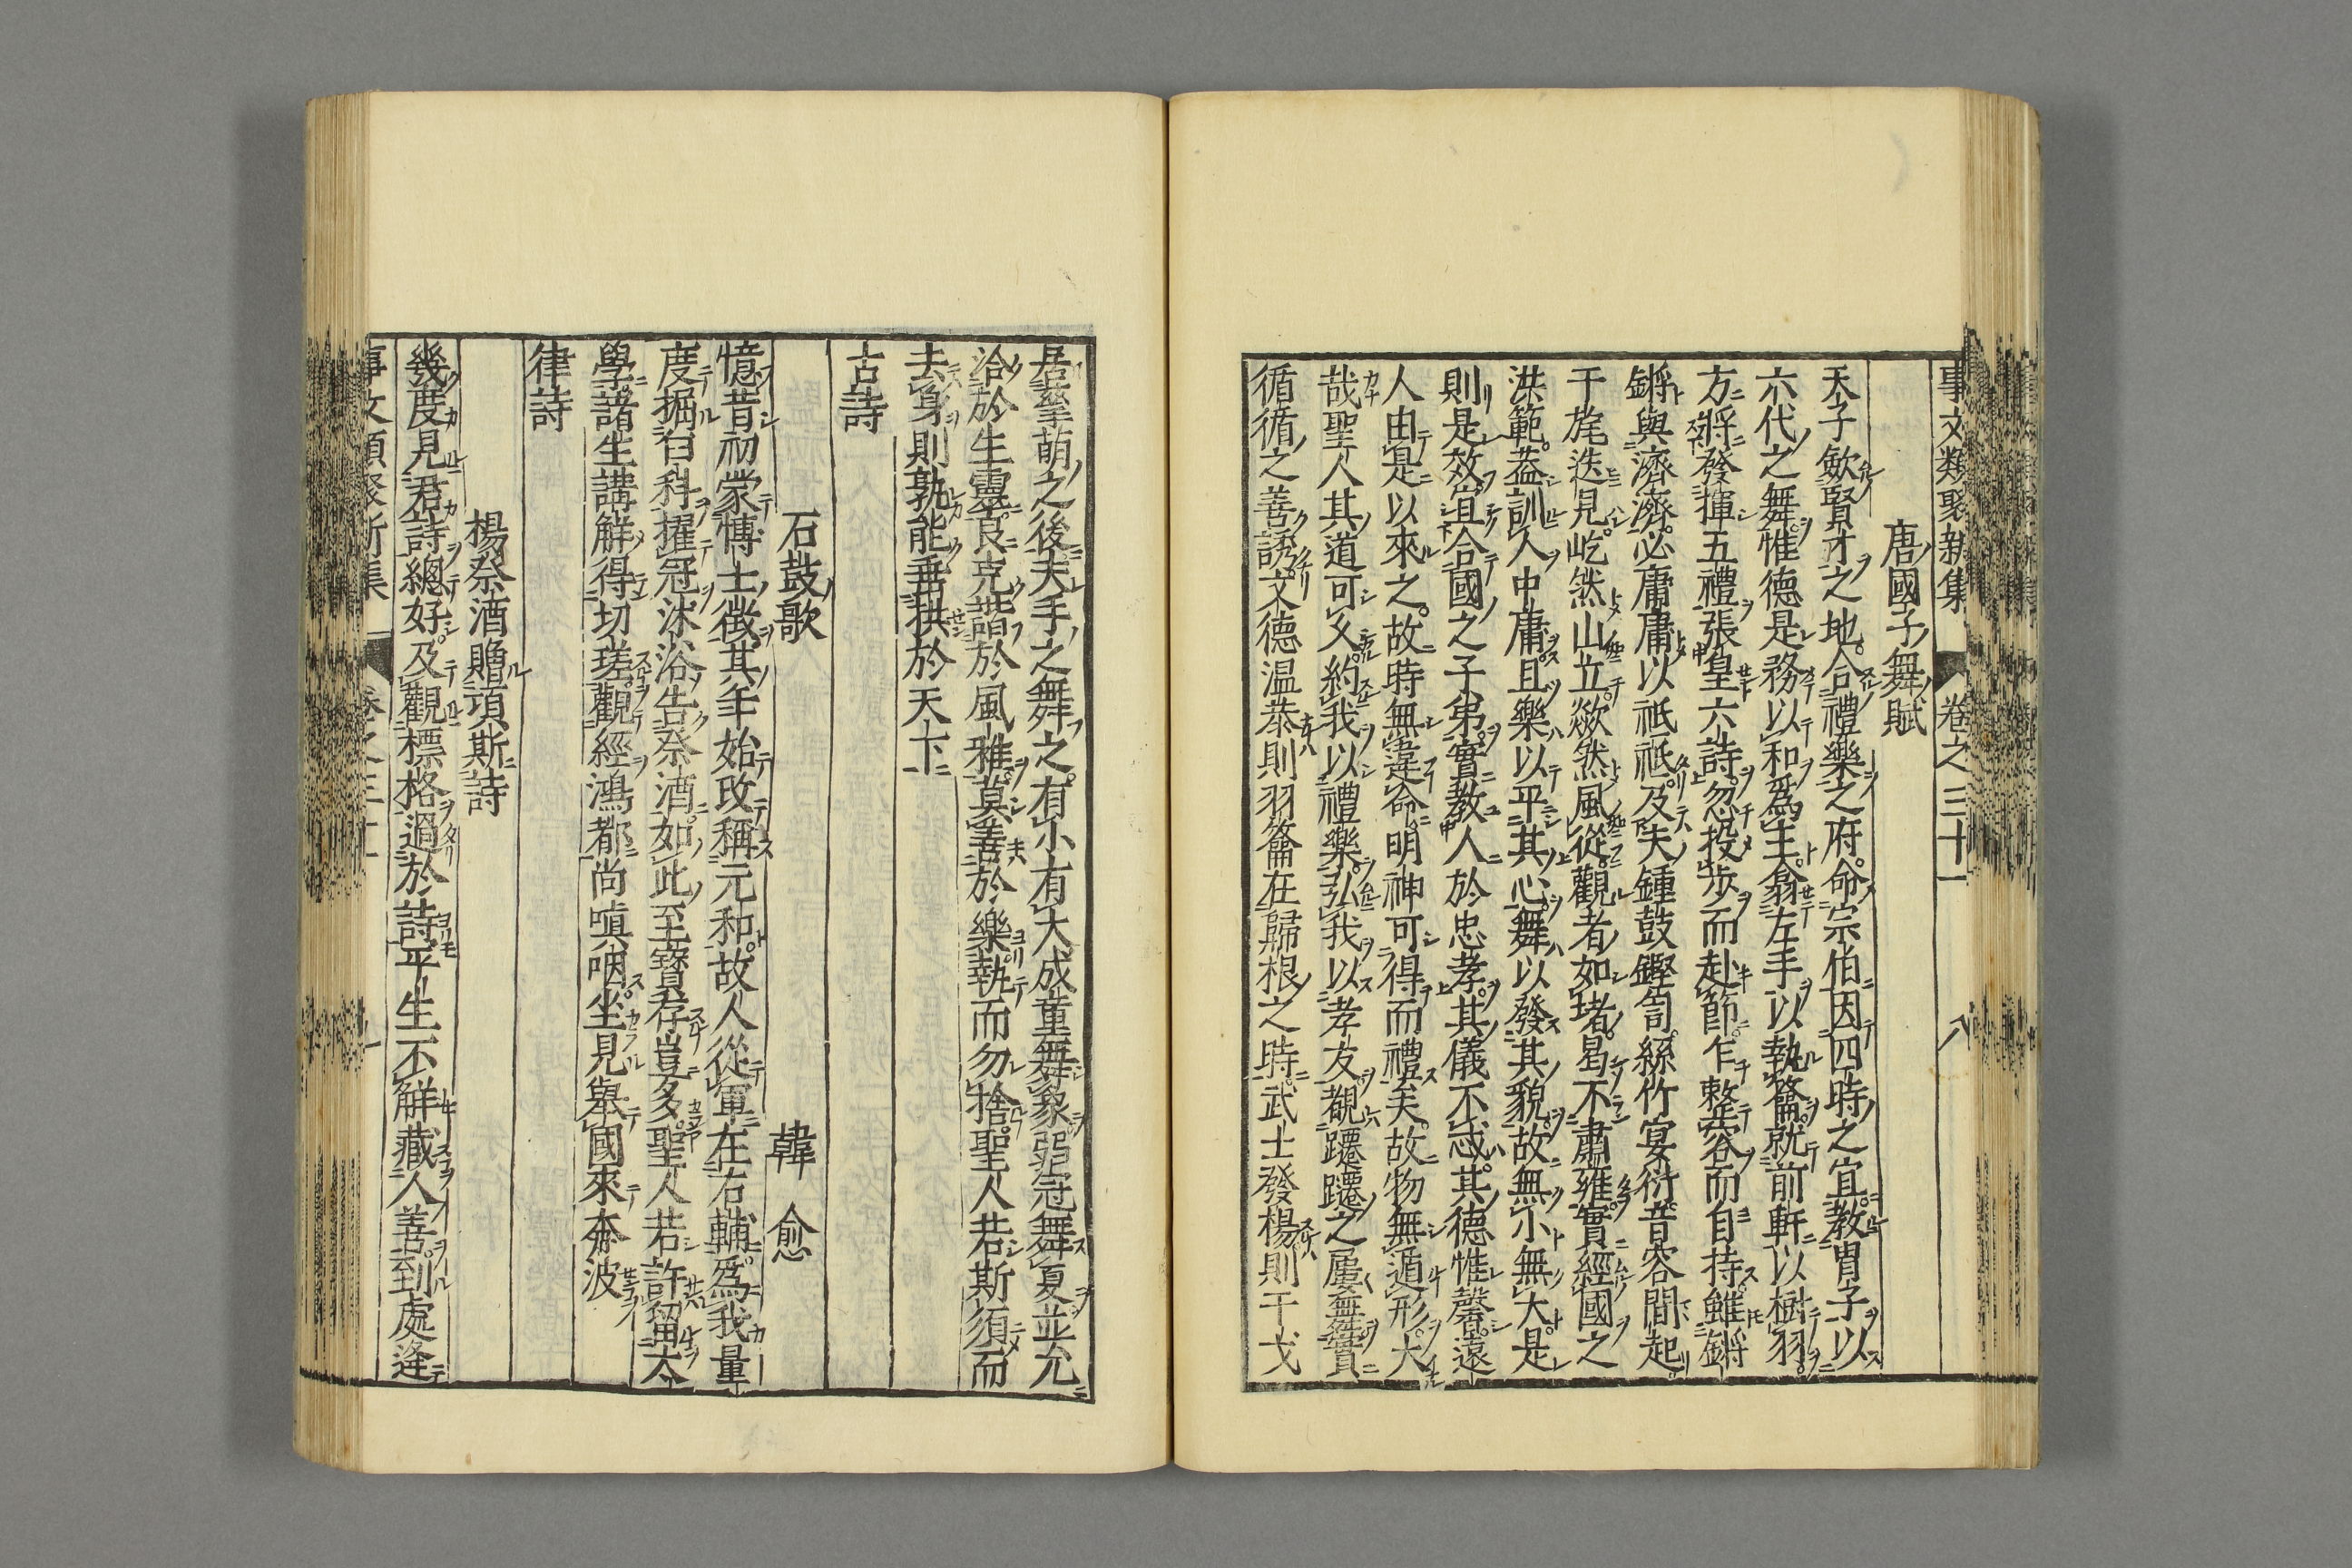 事文類聚新集 卷之三十一 八
唐國子舞賦
天子歛賢才之地合禮樂之府命宗伯因四時之宜教胄子以
六代之舞惟德是務以和爲主翕左手以執籥就前軒以樹羽
方將發揮五禮張皇六詩忽投步而赴節乍整容而自持雖鏘
鏘與濟濟必庸庸以祗祗及夫鍾鼓鏗訇絲竹宴衍音容間起
干旄迭見屹然山立歘然風從觀者如堵曷不肅雍實經國之
洪範蓋訓人中庸且樂以平其心舞以發其貌故無小無大是
則是效宜合國之子弟實教人於忠孝其儀不忒其德惟馨遠
人由是以來之故時無違命明神可得而禮矣故物無遁形大
哉聖人其道可久約我以禮樂弘我以孝友觀躚躚之屢舞實
循循之善誘文德温恭則羽籥在歸根之時武士發楊則干戈
居孳萌之後夫手之舞之有小有大成童舞象弱冠舞夏並允
洽於生靈良克諧於風雅莫善於樂執而勿捨聖人若斯須而
去身則孰能垂拱於天下
古詩
石鼓歌 韓愈
憶昔初蒙博士徵其年始改稱元和故人從軍在右輔爲我量
度掘臼科擢冠沐浴告祭酒如此至寶存豈多聖人若許留太
學諸生講解得切瑳觀經鴻都尚嗔咽坐見舉國來奔波
律詩
楊祭酒贈項斯詩
幾度見君詩總好及觀標格過於詩平生不解藏人善到處逢
事文類聚新集 卷之三十一